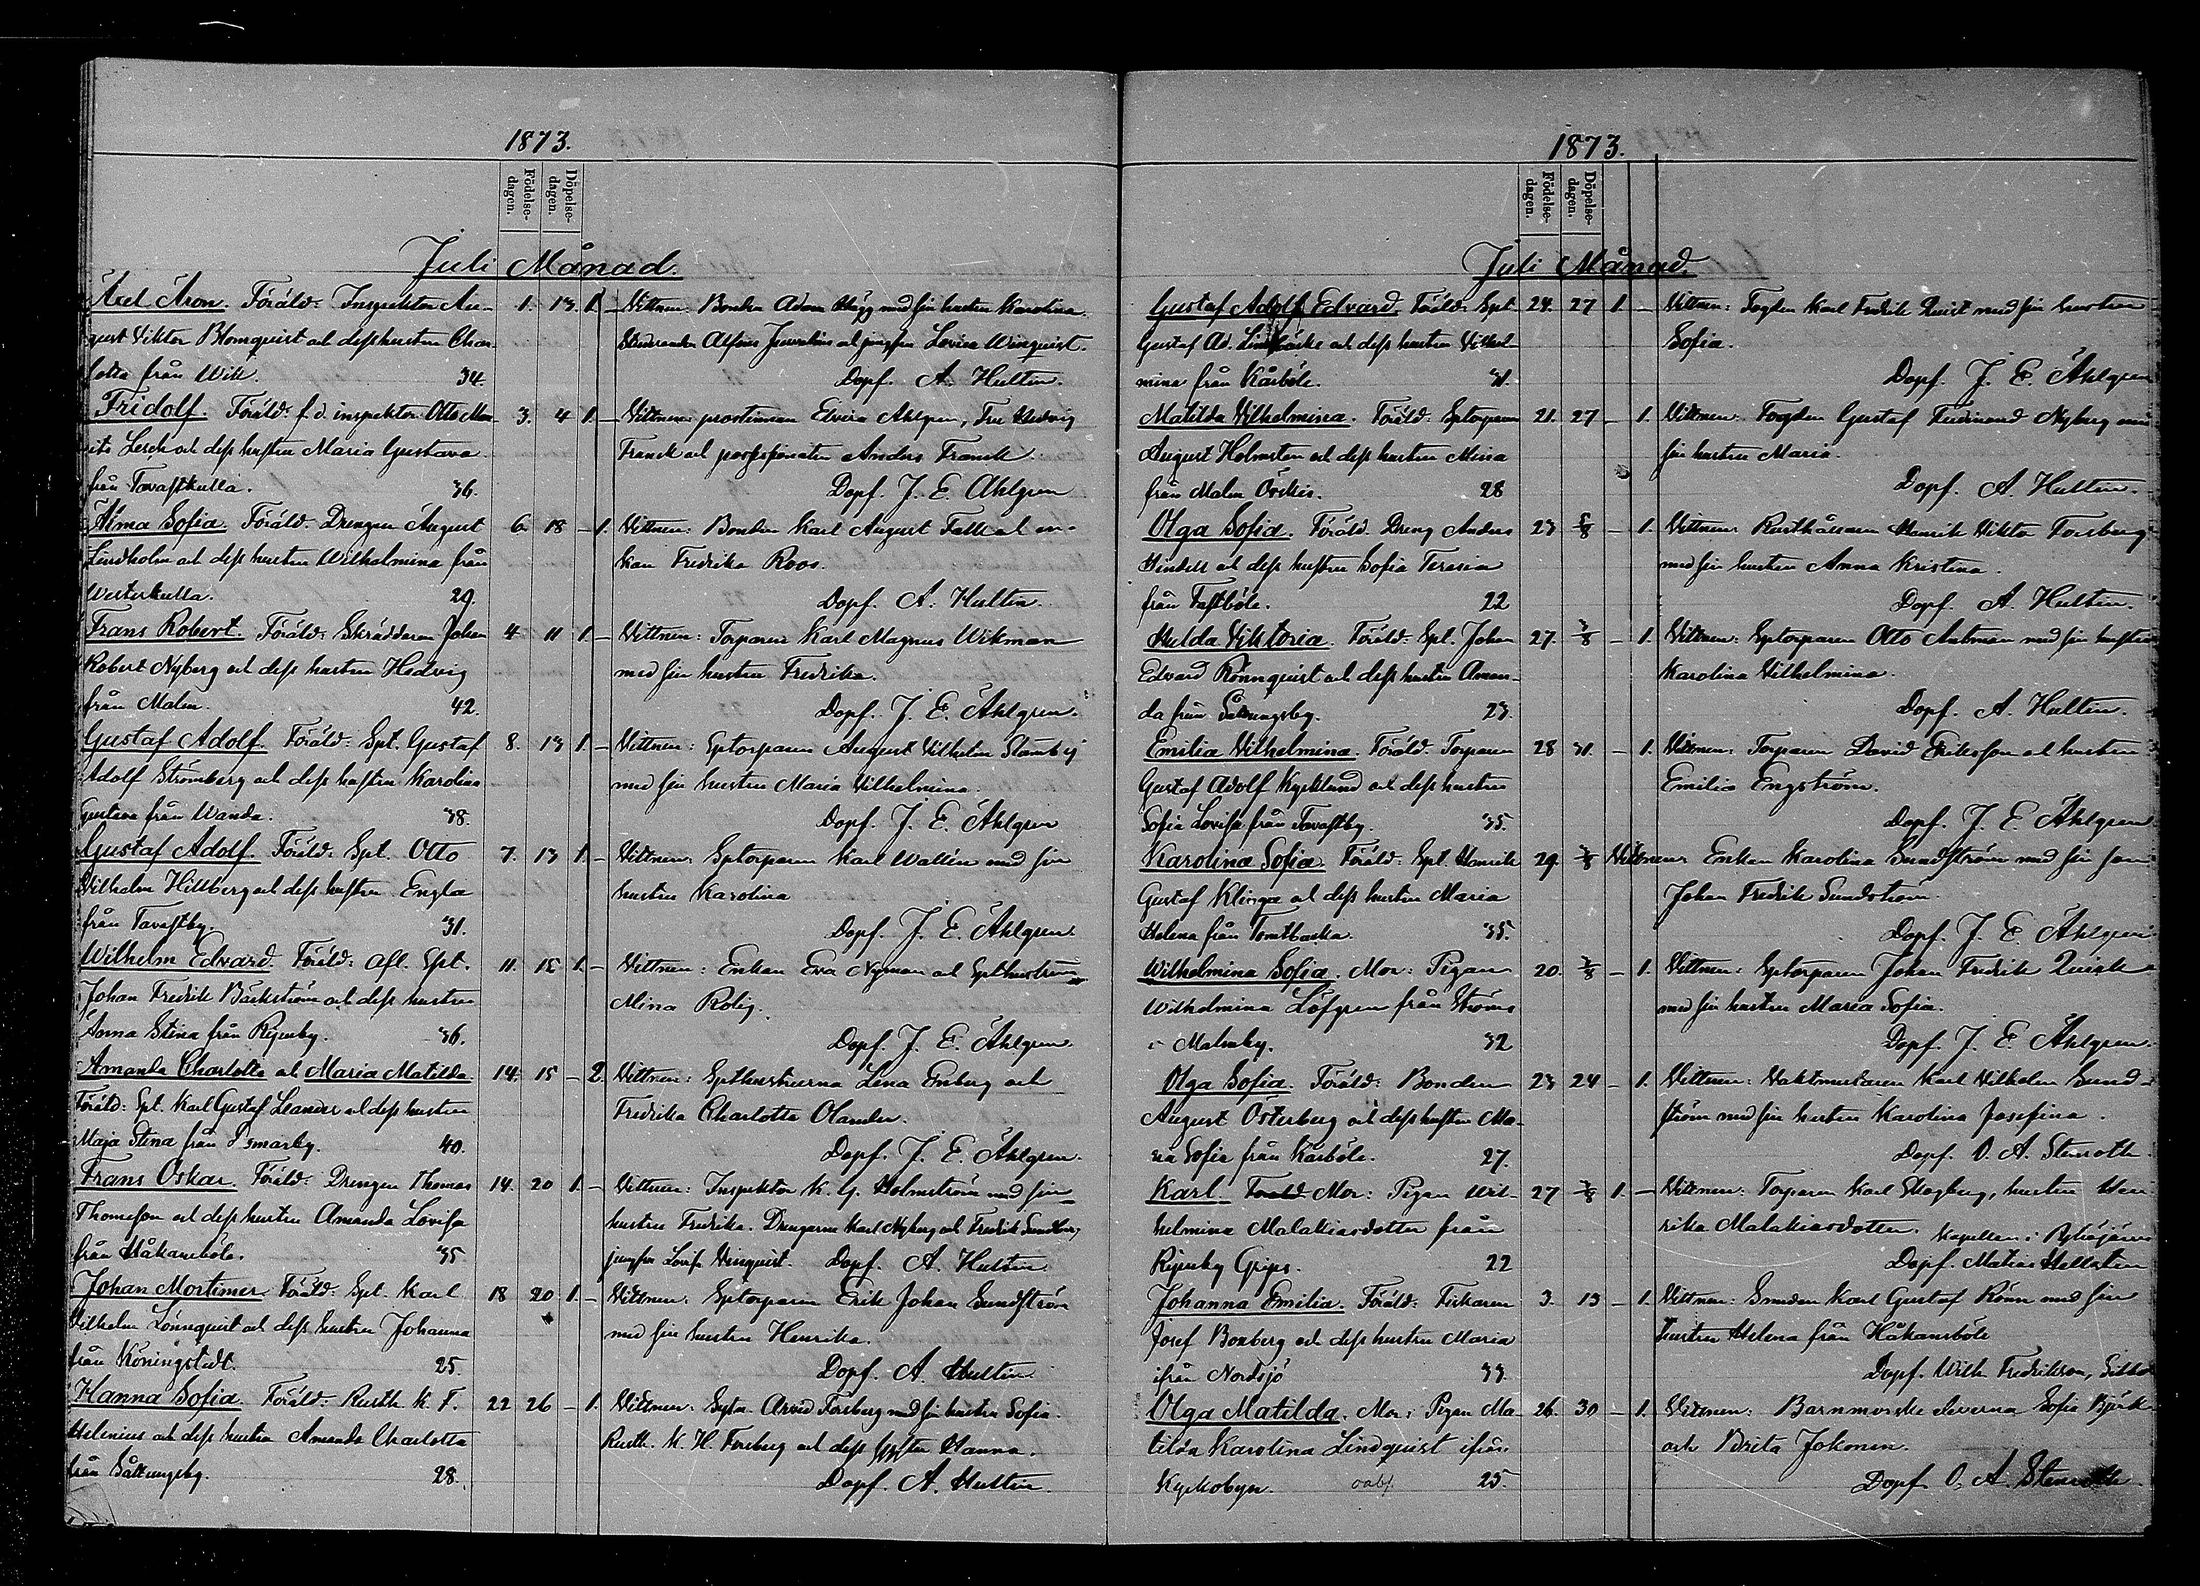 1873.
Födelse-
dagen.
Döpelse-
dagen.
Juli Månad.
Axel Aron. Föräld: Inspektor Au- 1. 13. 1. –
gust Viktor Blomquist och dess hustru Char
lotta från Wik. 34.
Vittnen: Bonden Adam med sin hustru Karolina.
Alfons och jungfru Lovisa Winquist.
Dopf. A. Hultin.
Fridolf. Föräld: f.d. inspektor Otto Mau- 3. 4 1. –
rits Lesch och dess hustru Maria Gustava
från Tavastkulla. 36.
Vittnen: prostinnan Elvira Ahlgren, Fru Hedvig
Franck och Anders Franck.
Dopf. J. E. Ahlgren
Alma Sofia. Föräld: Drengen August 6. 18 – 1.
Lindholm och dess hustru Wilhelmina från
Westerkulla. 29.
Vittnen: Bonden Karl August Falk och en-
kan Fredrika Roos.
Dopf. A. Hultin.
Frans Robert. Föräld: Skräddaren Johan 4. 11 1. –
Robert Nyberg och dess hustru Hedvig
från Malm. 42.
Vittnen: Torparen Karl Magnus Wikman
med sin hustru Fredrika.
Dopf. J. E. Åhlgren.
Gustaf Adolf. Föräld: Spt. Gustaf 8. 13 1. –
Adolf Strömberg och dess hustru Karolina
Gustava från Wanda. 38.
Vittnen: Sptorparen August Vilhelm
med sin hustru Maria Vilhelmina.
Dopf. J. E. Åhlgren
Gustaf Adolf. Föräld: Spt. Otto 7. 13 1. –
Vilhelm Hillberg och dess hustru Engla
från Tavastby. 31.
Vittnen: Sptorparen Karl Wallén med sin
hustru Karolina
Dopf. J. E. Åhlgren.
Wilhelm Edvard. Föräld: Afl. Spt. 11. 15 1. –
Johan Fredrik Bäckström och dess hustru
Anna Stina från Ripuby. 36.
Vittnen: Enkan Eva Nyman och Spthustrun
Mina Rolig.
Dopf. J. E. Åhlgren.
Amanda Charlotta och Maria Matilda. 14. 15 – 2.
Föräld: Spt. Karl Gustaf Leander och dess hustru
Maja Stina från Domarby. 40.
Vittnen: Spthustruerna Lena Enberg och
Fredrika Charlotta Olander.
Dopf. J. E. Åhlgren.
Frans Oskar. Föräld: Drengen Thomas 14. 20 1. –
Thomasson och dess hustru Amanda Lovisa
från Håkansböle. 35
Vittnen: Inspektor K. G. Holmström med sin
hustru Fredrika. Drengarne Karl Nyberg och Fredrik
jungfru Lovisa Winquist. Dopf. A. Hultin
Johan Mortimer. Föräld: Spt. Karl 18 20 1. –
Vilhelm Lönnquist och dess hustru Johanna
från Köningstedt. 25.
Vittnen: Sptorparen Erik Johan Sundström
med sin hustru Henrika.
Dopf. A. Hultin
Hanna Sofia. Föräld: Rusth. K. F. 22 26 – 1.
Helenius och dess hustru Amanda Charlotta
från Sottungsby. 28.
Vittnen: Arvid Forsberg med sin hustru Sofia.
Rusth. K. H. Forsberg och dess hustru Hanna.
Dopf. A. Hultin.
1873.
Födelse-
dagen.
Döpelse-
dagen.
Juli Månad.
Gustaf Adolf Edvard. Föräld: Spt. 24. 27 1. –
Gustaf Ad. och dess hustru Vilhel
mina från Kårböle. 31.
Vittnen: Fogden Karl Fredrik Quist med sin hustru
Sofia.
Dopf. J. E. Åhlgren
Matilda Vilhelmina. Föräld: Sptorparen 21. 27 – 1.
August Holmsten och dess hustru Mina
från Malm 28
Vittnen: Fogden Gustaf Ferdinand Nyberg med
sin hustru Maria.
Dopf. A. Hultin.
Olga Sofia. Föräld: Dreng Anders 23 – 1.
Hindell och dess hustru Sofia Teresia
från Fastböle. 22
Vittnen: Rusthållaren Henrik Viktor Forsberg
med sin hustru Anna Kristina.
Dopf. A. Hultin.
Hulda Viktoria. Föräld: Spt. Johan 27. 3/8 – 1.
Edvard Rönnquist och dess hustru Aman-
da från Sottungsby. 23.
Vittnen: Sptorparen Otto med sin hustru
Karolina Vilhelmina.
Dopf. A. Hultin.
Emilia Vilhelmina. Föräld: Torparen 28 31. – 1.
Gustaf Adolf Kycklund och dess hustru
Sofia Lovisa från Tavastby. 35.
Vittnen: Torparen David Eriksson och hustru
Emilia Engström.
Dopf. J. E. Åhlgren
Karolina Sofia. Föräld: Spt. Henrik 29.
Gustaf Klinga och dess hustru Maria
Helena från Tomtbacka. 35.
Vittnen: Enkan Karolina Sundström med sin son
Johan Fredrik Sundström.
Dopf. J. E. Åhlgren
Wilhelmina Sofia. Mor: Pigan 20. 3/8 – 1.
Wilhelmina Löfgren från Ströms
i Malmby. 32
Vittnen: Sptorparen Johan Fredrik
med sin hustru Maria Sofia.
Dopf. J. E. Åhlgren.
Olga Sofia. Föräld: Bonden 23 24 – 1.
August Österberg och dess hustru Ma-
ria Sofia från Kårböle. 27.
Vittnen: Vaktmästaren Karl Vilhelm Sund-
ström med sin hustru Karolina Josefina.
Dopf. O. A. Stenroth.
Karl. Föräld Mor: Pigan Wil- 27 3/8 1. –
helmina Malakiasdotter från
Ripuby Grips. 22
Vittnen: Torparen Karl Skogberg, hustru Hen
rika Malakiasdotter. Kapellan i
Dopf. Matias
Johanna Emilia. Föräld: Fiskaren 3. 13 – 1.
Josef Bomberg och dess hustru Maria
ifrån Nordsjö 33.
Vittnen: Smeden Karl Gustaf Rönn med sin
hustru Helena från Håkansböle
Dopf. Wilh. Fredrikson, Sibbo
Olga Matilda. Mor: Pigan Ma- 26. 30 – 1.
tilda Karolina Lindquist ifrån
Kyrkobyn. oäkt. 25.
Vittnen: Barnmorske eleverna Sofia Björk
och Brita Jokonen.
Dopf. O. A. Stenroth.